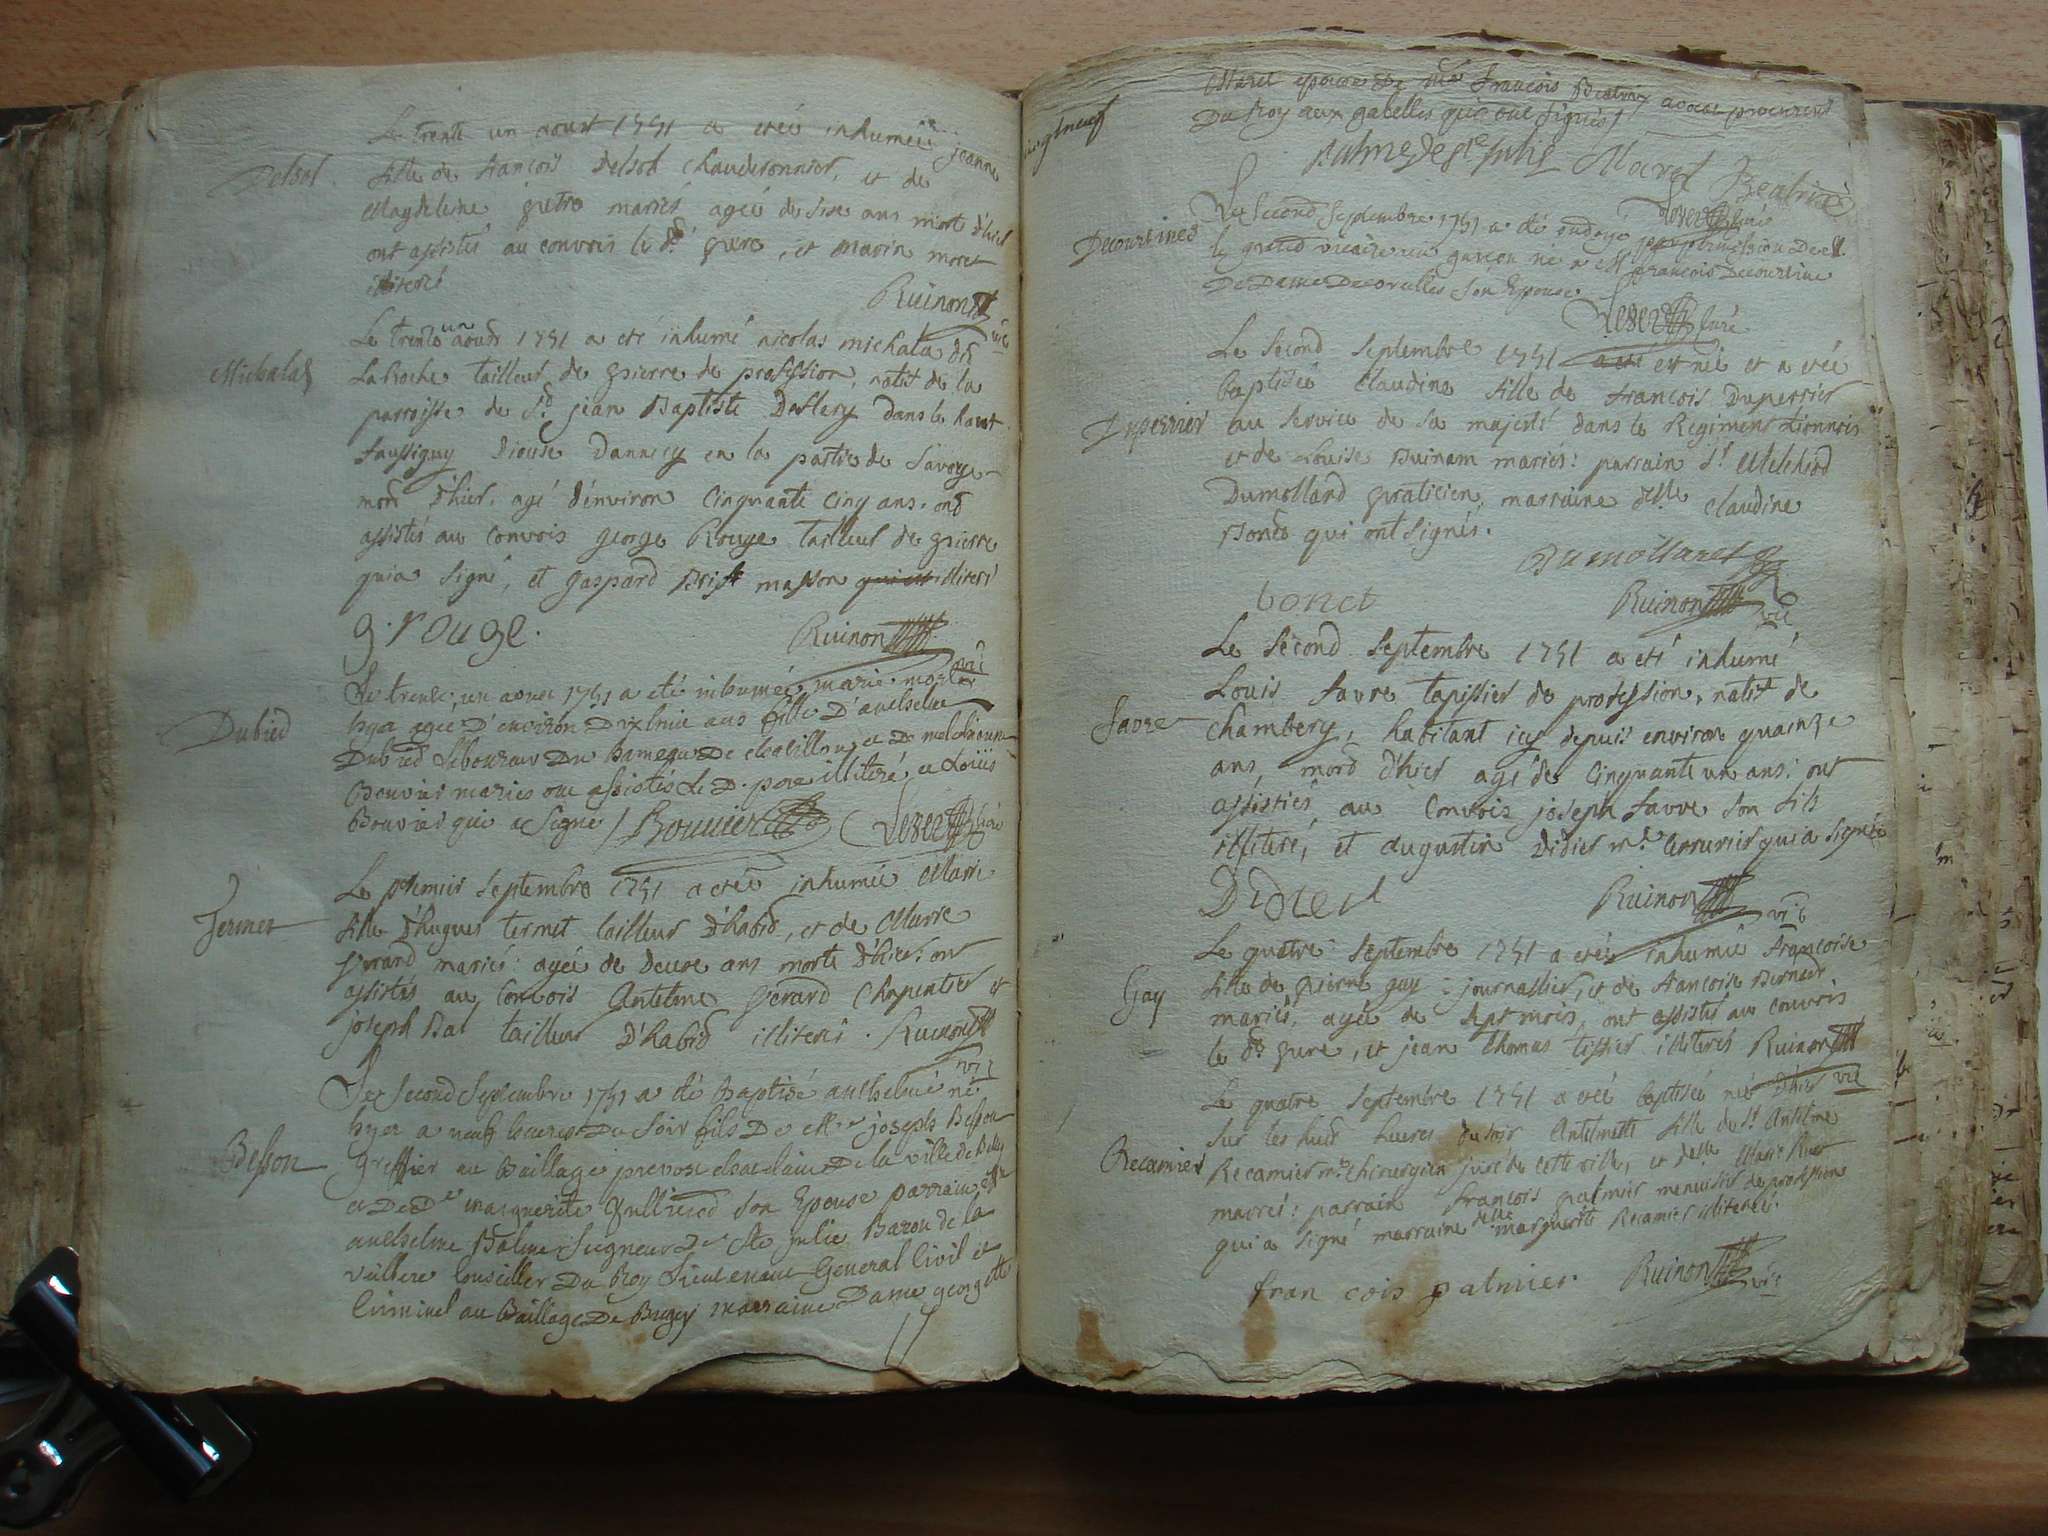 Le trente un aoust 1751 a etéé inhumée jeanne
Delsol
fille de françois Delsol chauderonnier, et de
Magdeleine pietre mariés agée de six ans morte d'hier
ont assistés au convois le dt pere, et marin moret
illiterés
Ruinon vic
Le trente un aoust 1751 a eté inhumé nicolas michala dit
Michalat
LaRoche tailleur de pierre de profession, natif de la
parroisse de St jean Baptiste dans le haut
faussigny Diocese Dannecy en la partie de Savoye
mort d'hier, agé d'environ cinquante cinq ans. ont
assistés au convois george Rouge tailleur de pierre
qui a signé, et gaspard masson illiteré
g. rouge.
Ruinon vic
Le trente, un aoust 1751 a eté inhumée marie morte
Dubied
hyer agée D'environ Dixhuit ans fille D'anthelme
Dubied Laboureur Du hameau De chatillon et De
Bouvier mariés ont assistés Le D. pere illiteré et Loüis
Bouvier qui a Signé / Bouuier curé
Le premier septembre 1751 a etéé inhumée Marie
Termet
fille d'hugues termet tailleur d'habit, et de Marie
mariés: agée de deux ans morte d'hier: ont
assistés au convois Antelme gerard charpentier et
joseph Bal tailleur d'habit illiterés. Ruinon
vic
Le Second Septembre 1751 a été Baptisé anthelme né
hyer a neuf heures Du Soir fils De Me joseph Besson
Besson
greffier au Bailliage prevost chatelain De la ville de Belley
et De De marguerite son Epouse parrain Mre
anthelme Balme Seigneur De Ste julie Baron de la
Conseiller Du Roy Lieutenant General Civil et
Criminel au Bailliage De Bugey marraine Dame georgette
Maret epouse De Me françois Beatrix avocat procureur
Du Roy aux gabelles qui ont Signés /
balme de ste julie Maret Beatrix
curé
Le Second Septembre 1751 a été ondoyé par permission De Mr
Decourtines
le grand vicaire un garçon né a Mr françois Decourtine
De Dame son Epouse
curé
Le second septembre 1751 est née et a etéé
baptisée Claudine fille de françois Duperrier
Duperrier
au service de sa majesté dans le Regiment Lionnois
et de Louise Buinam mariés: parrain Sr Melchiod
Dumolland praticien, marraine delle claudine
Bonet qui ont signés.
Dumollaret
bonet
Ruinon vic
Le second septembre 1751 a eté inhumé
Louis favre tapissier de profession, natif de
favre
chambery, habitant icy depuis environ quainze
ans, mort d'hier agé de cinquante un ans: ont
assistés au convois joseph favre son fils
illiteré, et augustin Didier md armurier qui a signé
Didier
Ruinon vic
Le quatre septembre 1751 a etéé inhumée françoise
Gay
fille de pierre gay journallier, et de françoise Bernard
mariés, agée de sept mois, ont assistés au convois
le dt pere, et jean thomas tissier illiterés Ruinon
vic
Le quatre septembre 1751 a etéé baptisée née d'hier
sur les huit heures du soir Antelmette fille du Sr Antelme
Recamier
Recamier me chirurgien juré de cette ville, et delle Marie
mariés: parrain françois palmier menuisier de profession
qui a signé marraine delle marguerite Recamier illiterée.
fran cois palmier
Ruinon vic